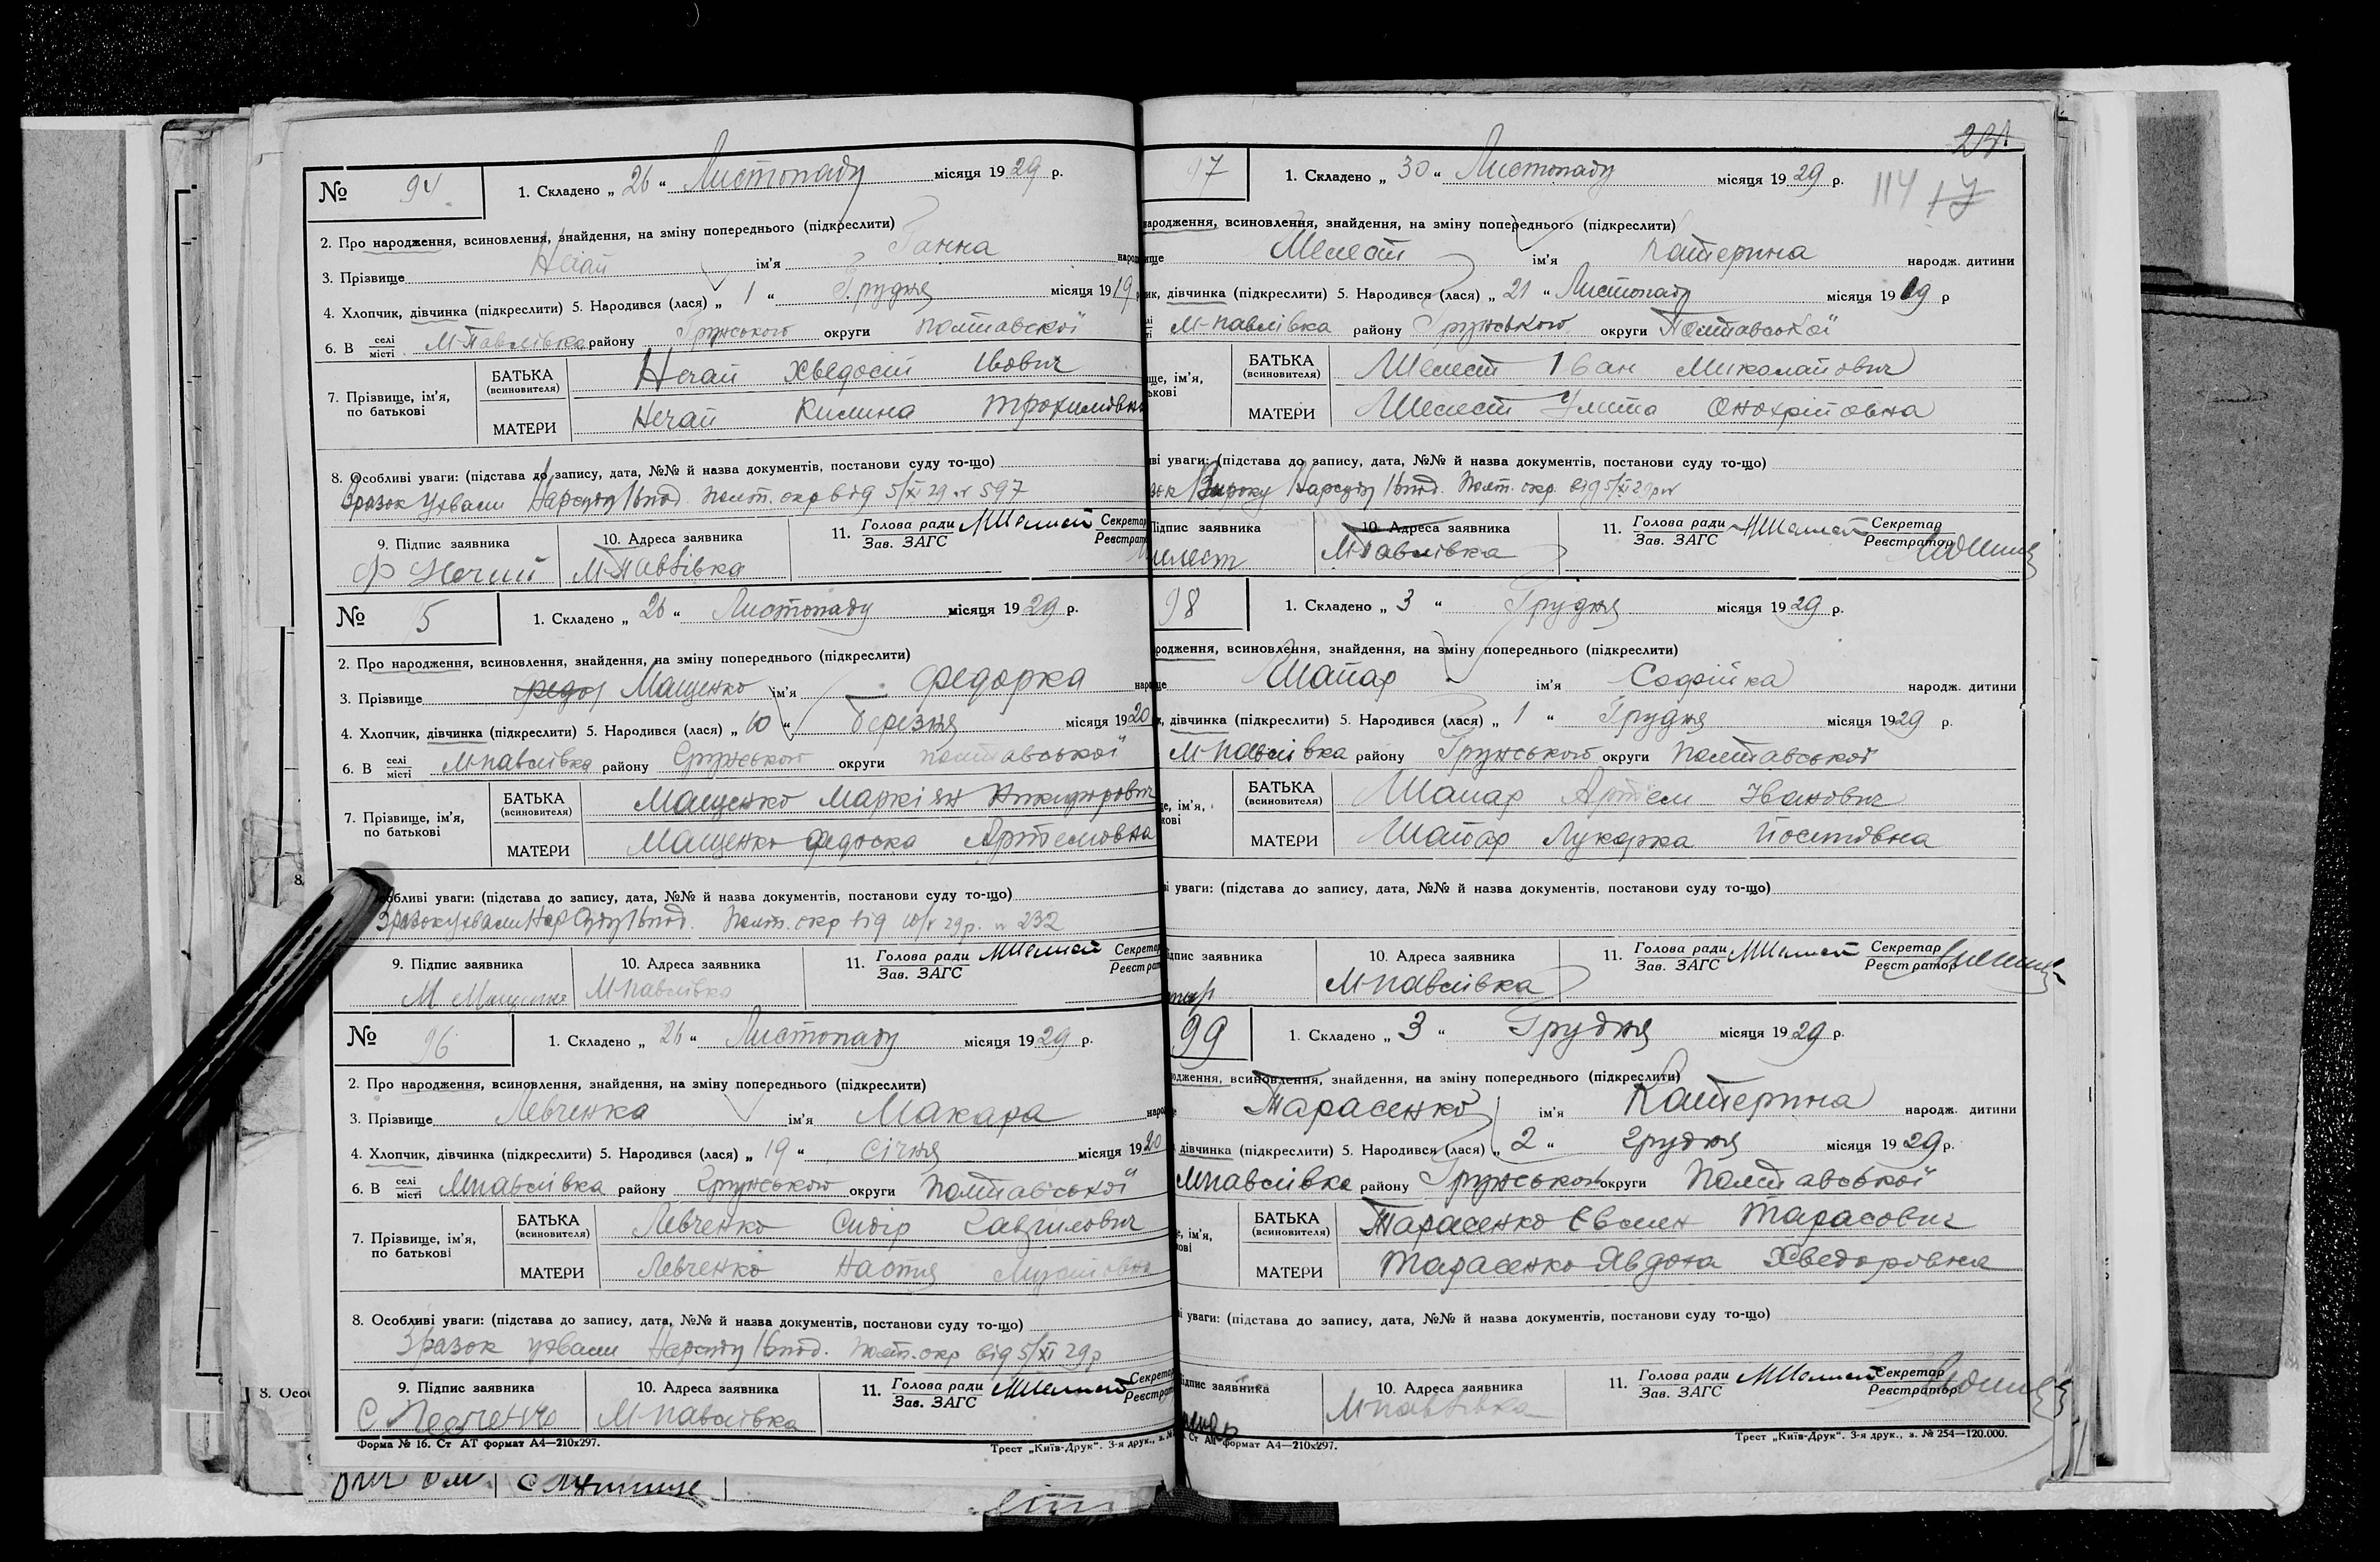 № 94 1. Складено „ 26 “ Листопаду місяця 1929 р.
2. Про народження, всиновлення, знайдення, на зміну попереднього (підкреслити)
3. Прізвище Нечай ім'я Ганна народ
4. Хлопчик, дівчинка (підкреслити) 5. Народився (лася) „ 1 “ Грудня місяця 1919 р
6. В селі місті М-Павлівка району Грунського округи Полтавської
7. Прізвище, ім'я, по батькові
БАТЬКА (всиновителя) Нечай Хведосій
МАТЕРИ Нечай Килина Трохимовна
8. Особливі уваги: (підстава до запису, дата, №№ й назва документів, постанови суду то-що)
Зразок Ухвали Нарсуду Полт. окр від 5/XI 29 № 597
9. Підпис заявника Ф Нечай 10. Адреса заявника М-Павлівка 11. Голова ради Зав. ЗАГС Секретар Реєстрат
№ 5 1. Складено „ 26 “ Листопаду місяця 1929 р.
2. Про народження, всиновлення, знайдення, на зміну попереднього (підкреслити)
3. Прізвище Мащенко ім'я Федорка народ
4. Хлопчик, дівчинка (підкреслити) 5. Народився (лася) „ 10 “ Березня місяця 1920
6. В селі місті М-Павлівка району Грунського округи Полтавської
7. Прізвище, ім'я, по батькові
БАТЬКА (всиновителя) Мащенко Маркіян Никифорович
МАТЕРИ Мащенко Федоска Артемовна
обливі уваги: (підстава до запису, дата, №№ й назва документів, постанови суду то-що)
Зразок ухвали Нар Суду Полт. окр від 29р. № 232
9. Підпис заявника М Мащенко 10. Адреса заявника М-Павлівка 11. Голова ради Зав. ЗАГС Секретар Реєстрат
№ 96 1. Складено „ 26 “ Листопаду місяця 1929 р.
2. Про народження, всиновлення, знайдення, на зміну попереднього (підкреслити)
3. Прізвище Левченка ім'я Макара народ
4. Хлопчик, дівчинка (підкреслити) 5. Народився (лася) „ 19 “ Січня місяця 1920
6. В селі місті М-Павлівка району Грунського округи Полтавської
7. Прізвище, ім'я, по батькові
БАТЬКА (всиновителя) Левченко Сидір Гаврилович
МАТЕРИ Левченко Настя
8. Особливі уваги: (підстава до запису, дата, №№ й назва документів, постанови суду то-що)
Зразок ухвали Нарсуду Полт. окр від 5/XI 29р
9. Підпис заявника С Левченко 10. Адреса заявника М-Павлівка 11. Голова ради Зав. ЗАГС Секретар Реєстрат
Форма № 16. Ст АТ формат А4—210х297. Трест „Київ-Друк“. 3-я друк., з. №
231
114 17
97 1. Складено „ 30 “ Листопаду місяця 1929 р.
народження, всиновлення, знайдення, на зміну попереднього (підкреслити)
ище Шелест ім'я Катерина народж. дитини
ик, дівчинка (підкреслити) 5. Народився (лася) „ 21 “ Листопаду місяця 1919 р
М-Павлівка району Грунського округи Полтавської
ще, ім'я, ькові
БАТЬКА (всиновителя) Шелест Іван Миколайович
МАТЕРИ Шелест Улита Онохрійовна
ві уваги: (підстава до запису, дата, №№ й назва документів, постанови суду то-що)
зок Вироку Нарсуду Полт. окр. від 5/XI 29р №
Підпис заявника Шелест 10. Адреса заявника М-Павлівка 11. Голова ради Зав. ЗАГС Секретар Реєстратор
98 1. Складено „ 3 “ Грудня місяця 1929 р.
родження, всиновлення, знайдення, на зміну попереднього (підкреслити)
ще Шапар ім'я Софійка народж. дитини
к, дівчинка (підкреслити) 5. Народився (лася) „ 1 “ Грудня місяця 1929 р.
М-Павлівка району Грунського округи Полтавської
е, ім'я, кові
БАТЬКА (всиновителя) Шапар Артем Іванович
МАТЕРИ Шапар Лукерка Йосипівна
і уваги: (підстава до запису, дата, №№ й назва документів, постанови суду то-що)
ідпис заявника 10. Адреса заявника М-Павлівка 11. Голова ради Зав. ЗАГС Секретар Реєстратор
99 1. Складено „ 3 “ Грудня місяця 1929 р.
одження, всиновлення, знайдення, на зміну попереднього (підкреслити)
Тарасенко ім'я Катерина народж. дитини
дівчинка (підкреслити) 5. Народився (лася) „ 2 “ Грудня місяця 1929 р.
М-Павлівка району Грунського округи Полтавської
е, ім'я, ові
БАТЬКА (всиновителя) Тарасенко Євмен Тарасович
МАТЕРИ Тарасенко Явдоха Хведоровна
і уваги: (підстава до запису, дата, №№ й назва документів, постанови суду то-що)
ідпис заявника 10. Адреса заявника М-Павлівка 11. Голова ради Зав. ЗАГС Секретар Реєстратор
Ст АТ формат А4—210х297. Трест „Київ-Друк“. 3-я друк., з. № 254—120.000.